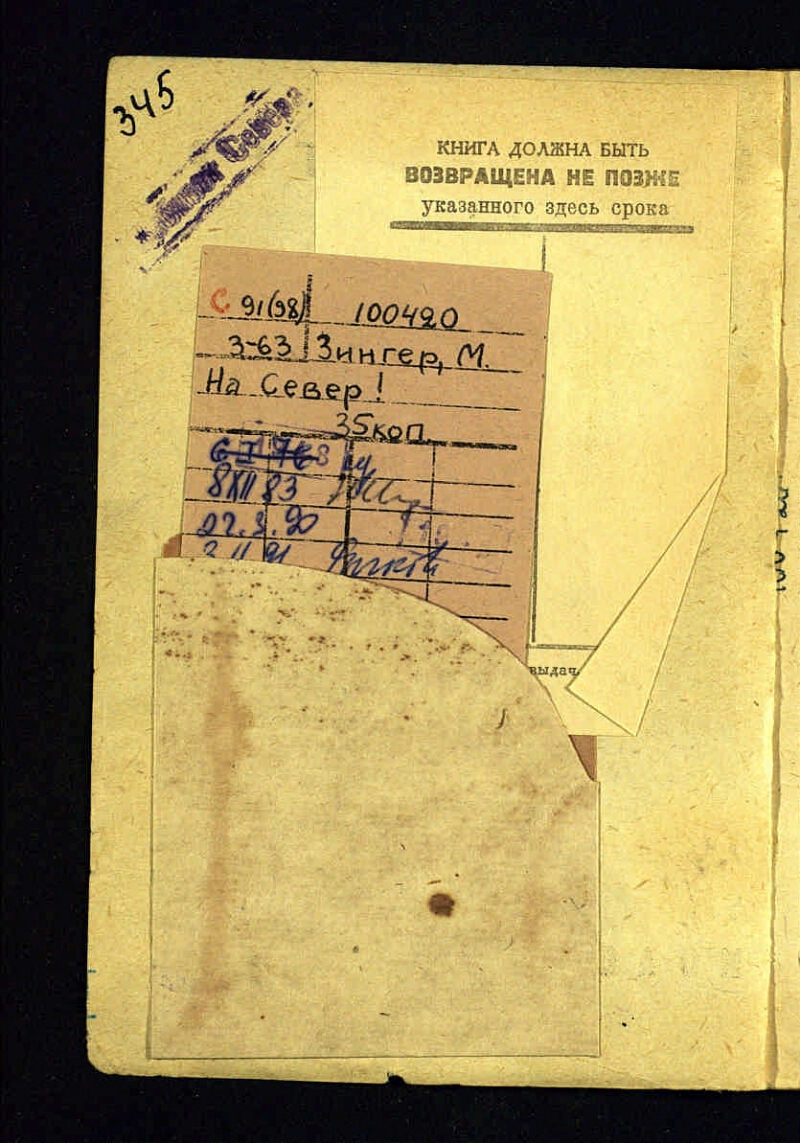 345
Севера
КНИГА ДОЛЖНА БЫТЬ
ВОЗВРАЩЕНА НЕ ПОЗЖЕ
указанного здесь срока
С 91(98) 100420
З-63 Зингер, М.
На Север!
35 коп.
8 XII 83
22.3.90
выдач.